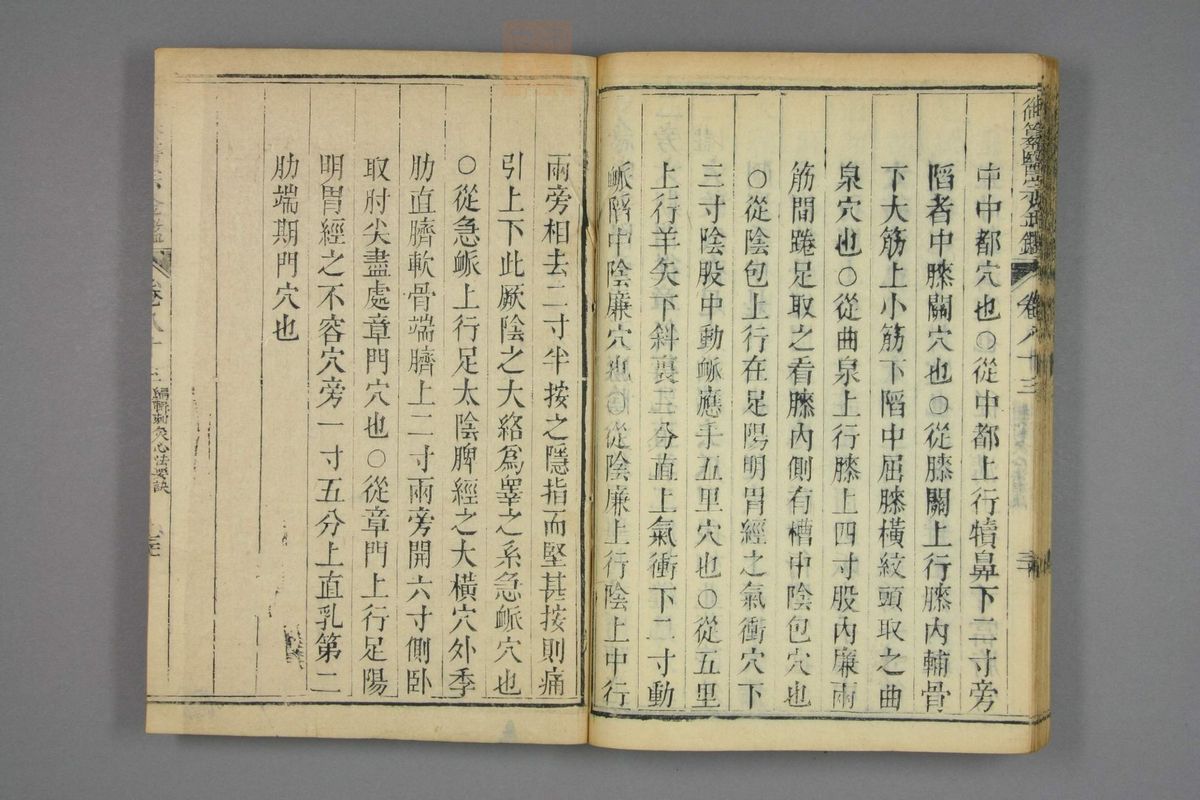 御纂醫宗金鑑 卷八十三
中中都穴也○從中都上行犢鼻下二寸旁
陷者中膝關穴也○從膝關上行膝內輔骨
下大筋上小筋下陷中屈膝橫紋頭取之曲
泉穴也○從曲泉上行膝上四寸股內廉兩
筋間踡足取之看膝內側有槽中陰包穴也
○從陰包上行在足陽明胃經之氣衝穴下
三寸陰股中動䘑應手五里穴也○從五里
上行羊矢下斜裏三分直上氣衝下二寸動
䘑陷中陰廉穴也○從陰廉上行陰上中行
兩旁相去二寸半按之隱指而堅甚按則痛
引上下此厥陰之大絡為睾之系急䘑穴也
○從急䘑上行足太陰脾經之大橫穴外季
肋直臍軟骨端臍上二寸兩旁開六寸側卧
取肘尖盡處章門穴也○從章門上行足陽
明胃經之不容穴旁一寸五分上直乳第二
肋端期門穴也
金鑑 卷八十三 編輯刺灸心法要訣